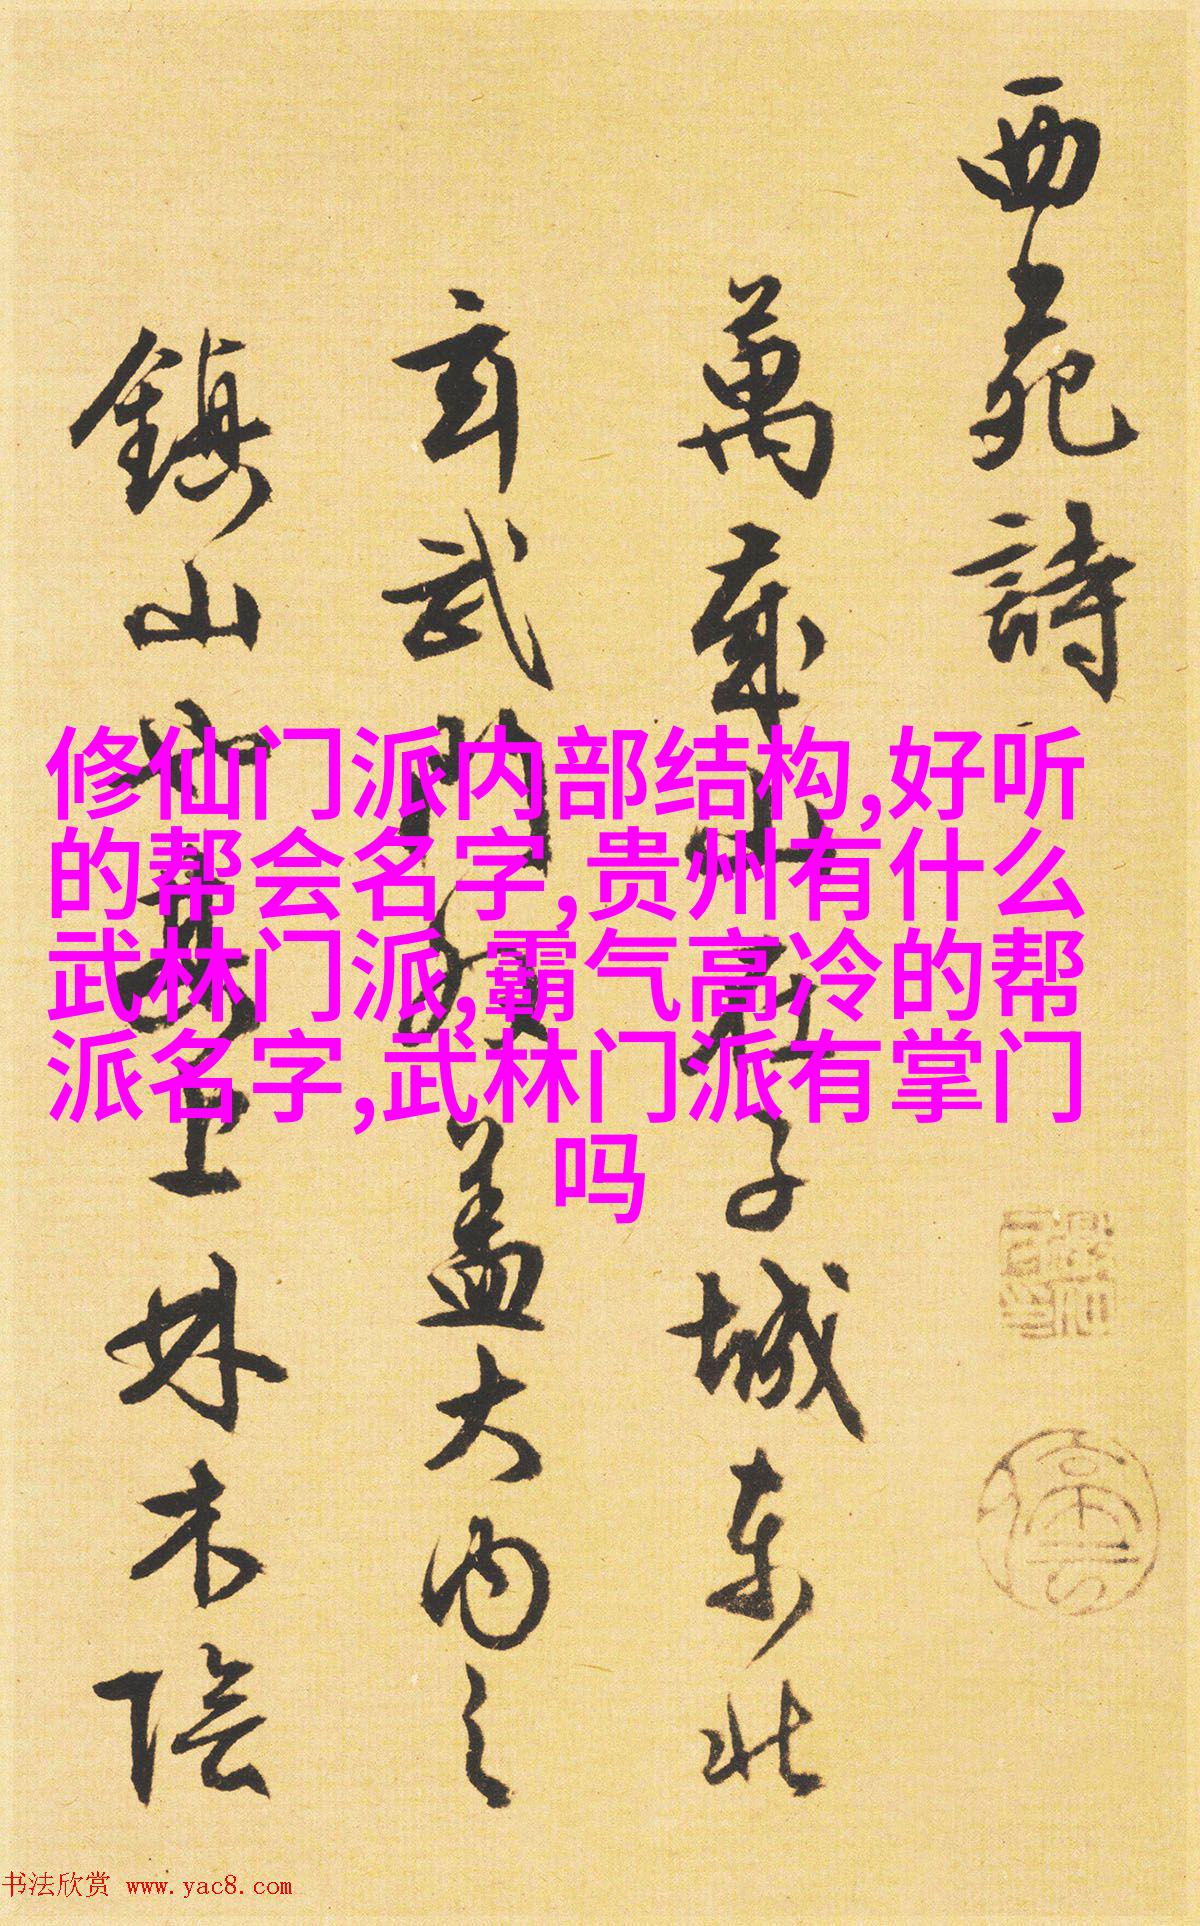 西苑詩
萬歲山在子城東北
玄武門外蓋大內之
鎮山也其上林木陰
修仙门派内部结构,好听
的帮会名字,贵州有什么
武林门派,霸气高冷的帮
派名字,武林门派有掌门
吗
书法欣赏 www.yac8.com